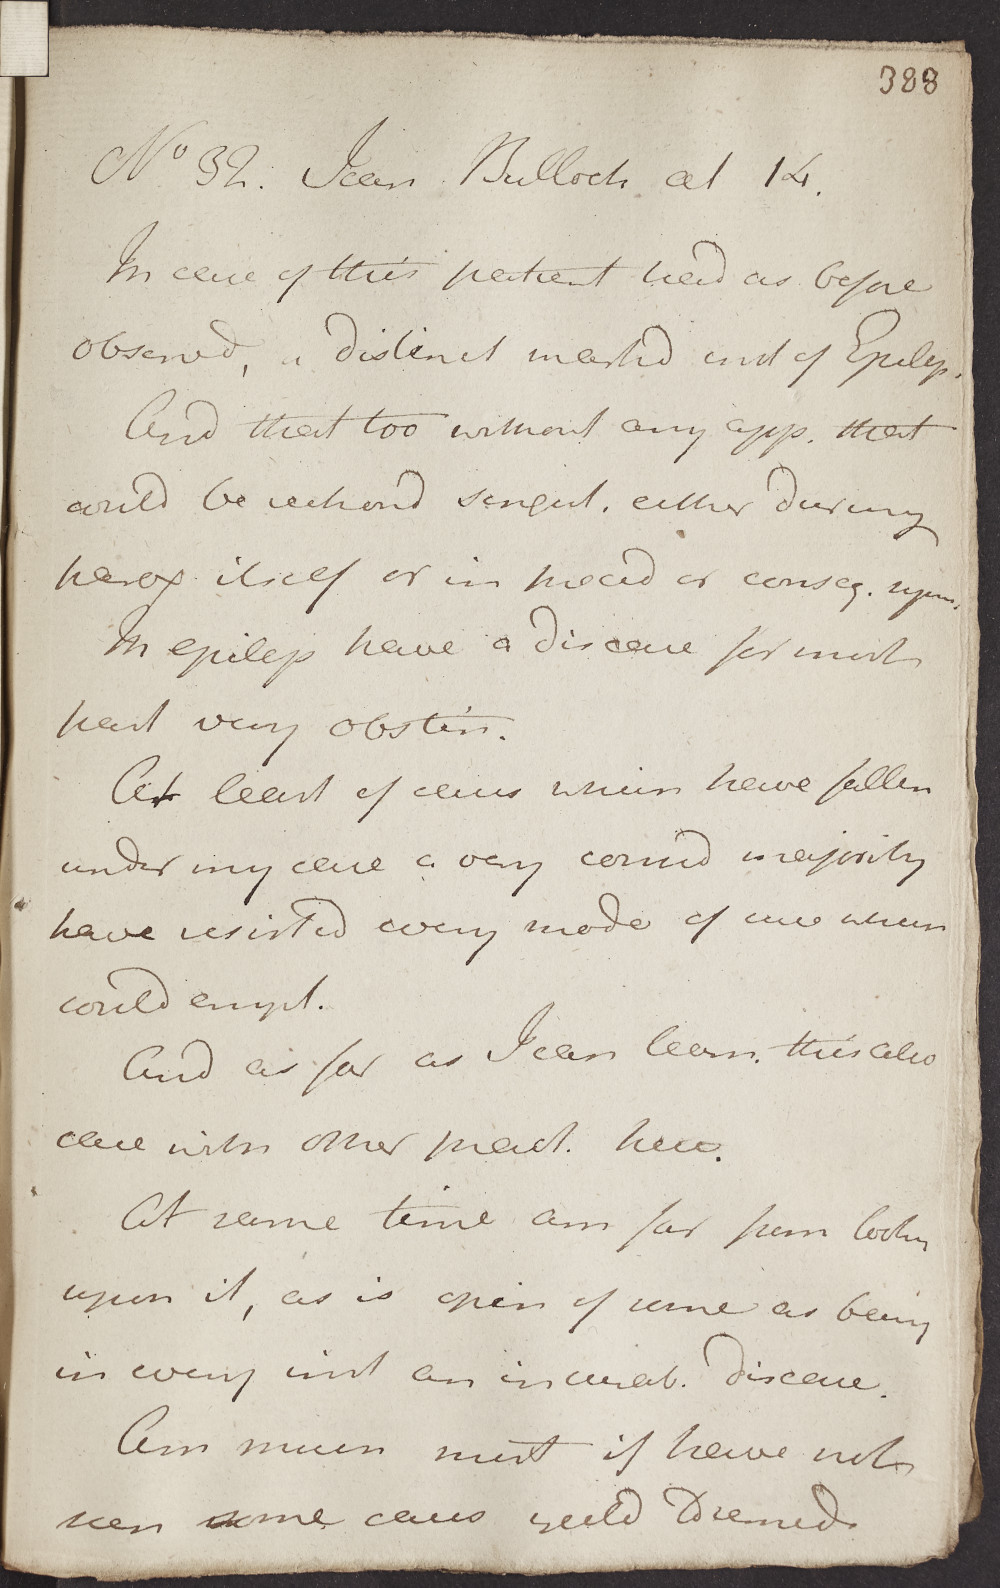 388
No 32. Jean Bulloch æt 14.
In case of this patient had as before
observed, a distinct marked inst of Epilep.
And that too without any app. that
could be reckond singul. either during
parox itself or in preced or conseq. upon.
In epilep have a disease for most
part very obstin.
At least of cases which have fallen
under my care a very consid majority
have resisted every mode of cure which
could empl.
And as far as I can learn. this also
case with other pract. here.
At same time am far from looking
upon it, as is opin of some as being
in every inst an incurab. disease.
Am much mist if have not
seen some cases yield to remed